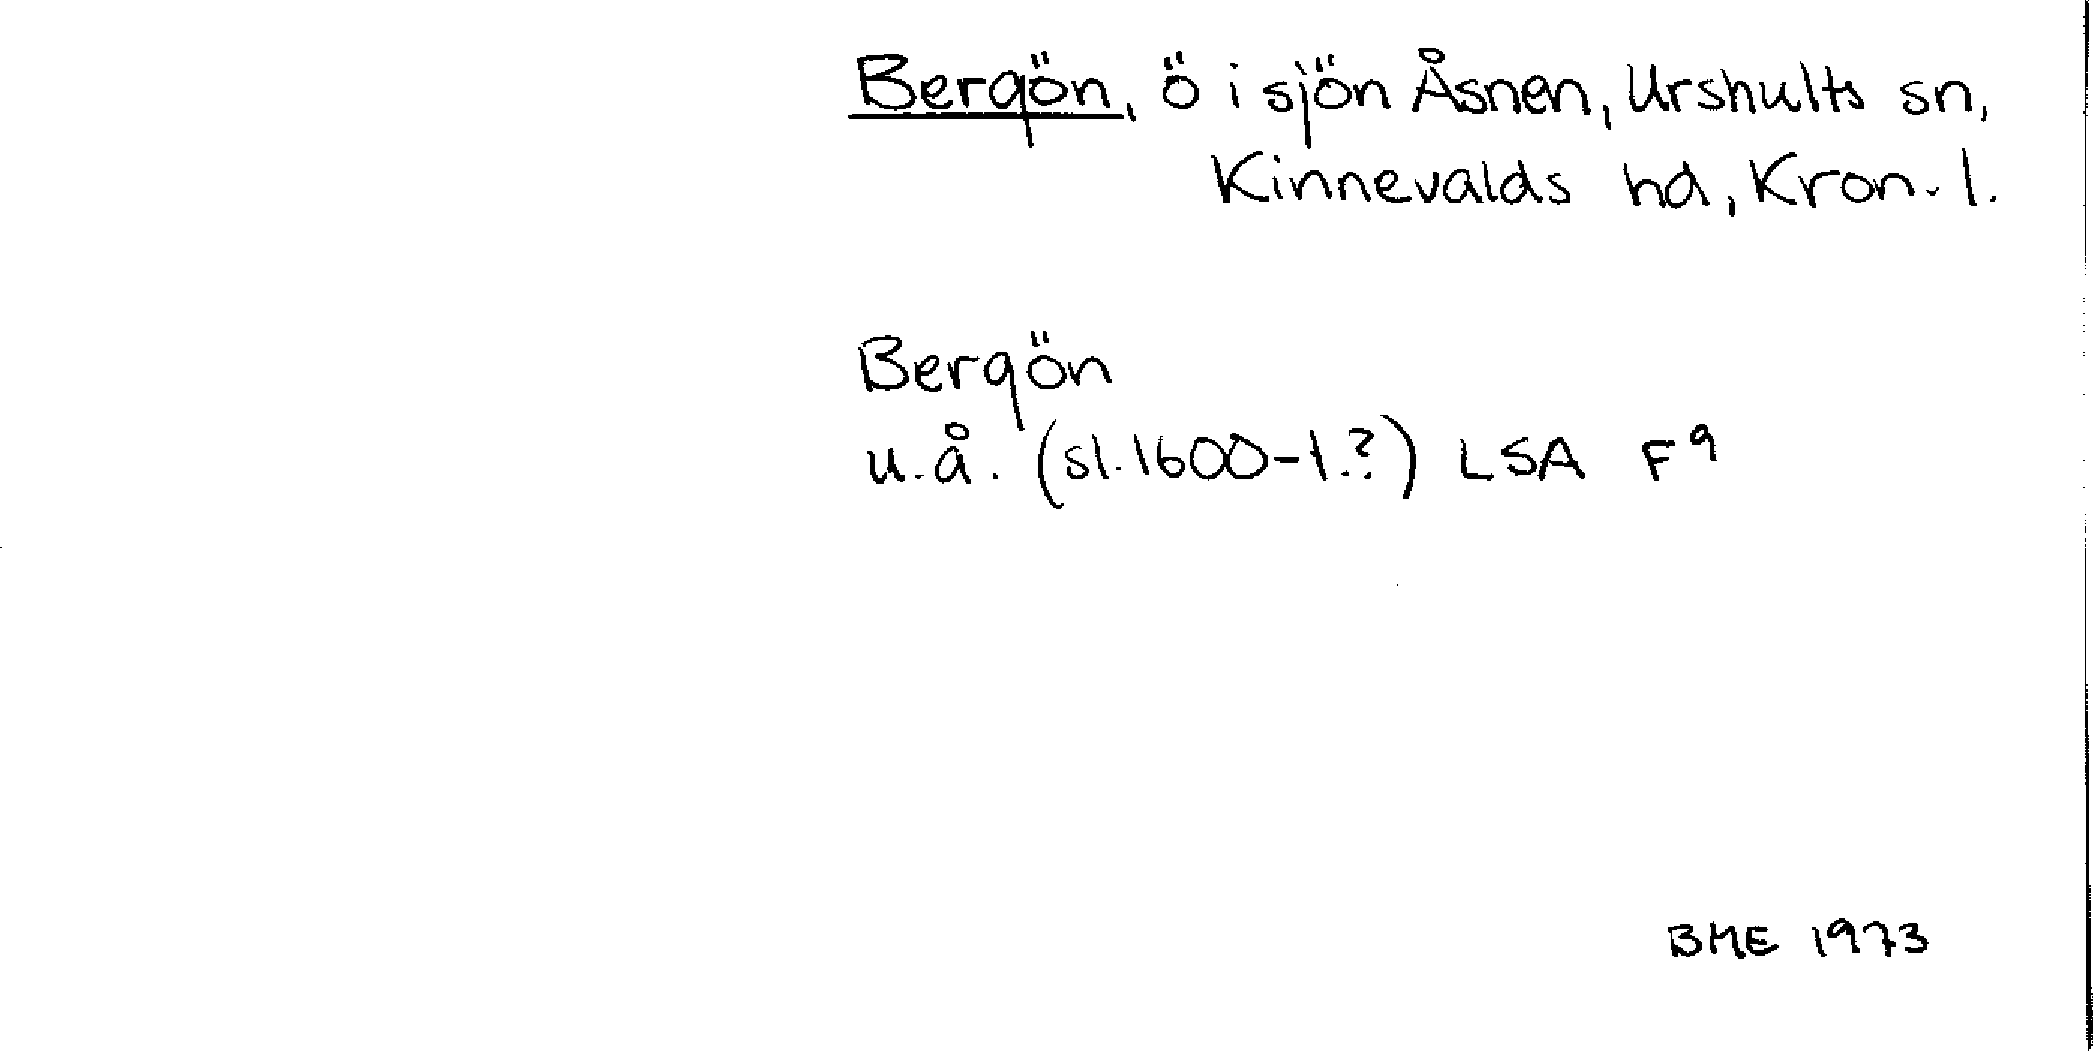 Bergön, ö i sjön Åsnen, Urshults sn,
Kinnevalds hd, Kron. l.
Bergön
u.å. (sl. 1600-t.?) LSA F⁹
BME 1973